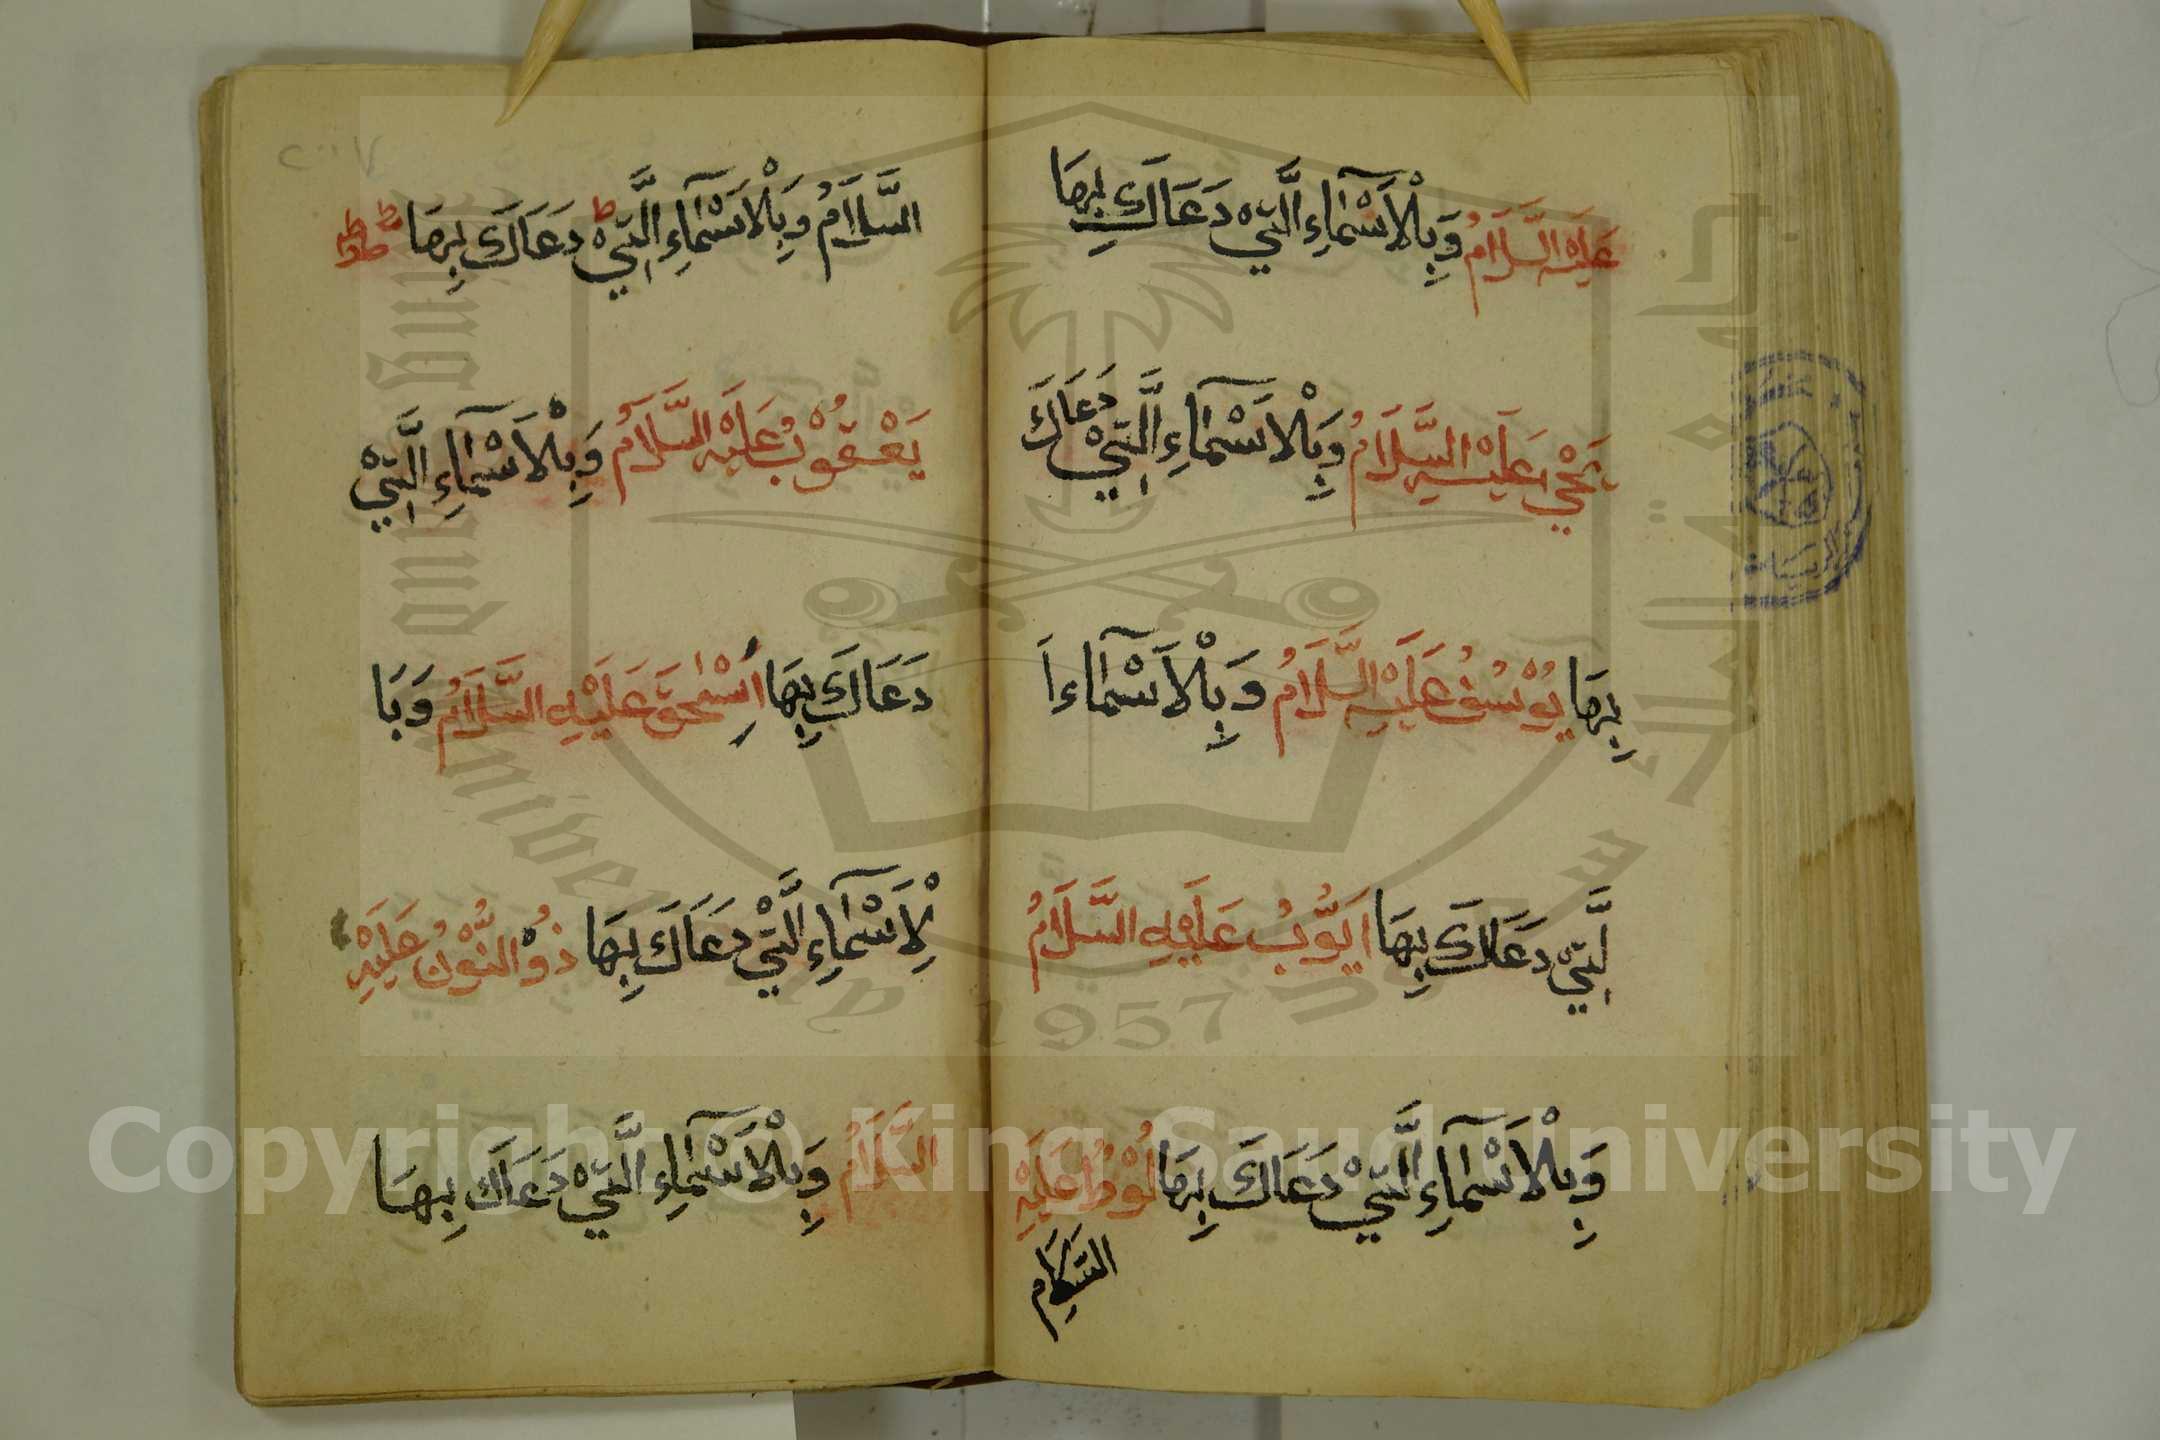 عَلَيْهِ السَّلَامُ وَبِالْاَسْمَآءِ الَّتِيْ دَعَاكَ بِهَا
يَحْيٰ عَلَيْهِ السَّلَامُ وَبِالْاَسْمَآءِ الَّتِيْ دَعَاكَ
بِهَا يُوْسُفُ عَلَيْهِ السَّلَامُ وَبِالْاَسْمَآءِ ا
لَّتِيْ دَعَاكَ بِهَا اَيُّوْبُ عَلَيْهِ السَّلَامُ
وَبِالْاَسْمَآءِ الَّتِيْ دَعَاكَ بِهَا لُوْطُ عَلَيْهِ
السَّلَام
السَّلَامُ وَبِالْاَسْمَآءِ الَّتِيْ دَعَاكَ بِهَا
يَعْقُوْبُ عَلَيْهِ السَّلَامُ وَبِالْاَسْمَآءِ الَّتِيْ
دَعَاكَ بِهَا اِسْحٰقُ عَلَيْهِ السَّلَامُ وَبَا
لْاَسْمَآءِ الَّتِيْ دَعَاكَ بِهَا ذُو النُّوْنُ عَلَيْهِ
السَّلَامُ وَبِالْاَسْمَآءِ الَّتِيْ دَعَاكَ بِهَا
King Saud University
1957
Copyright © King Saud University